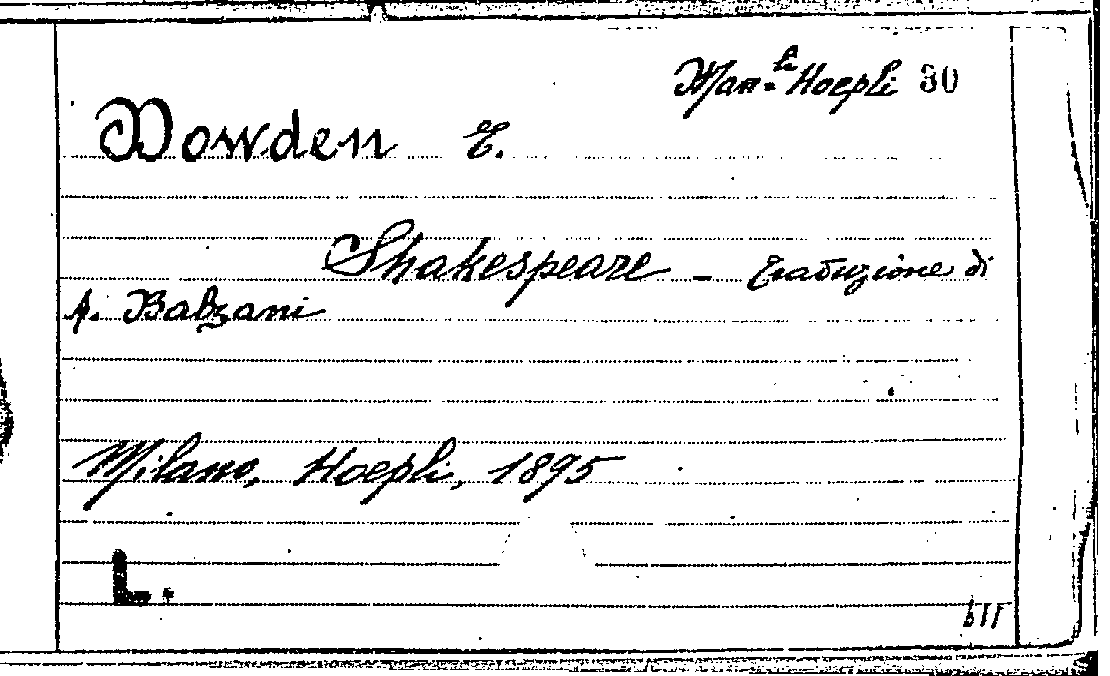 Man.li Hoepli 30
Dowden E.
Shakespeare - traduzione di
A. Balzani
Milano, Hoepli, 1895
L.